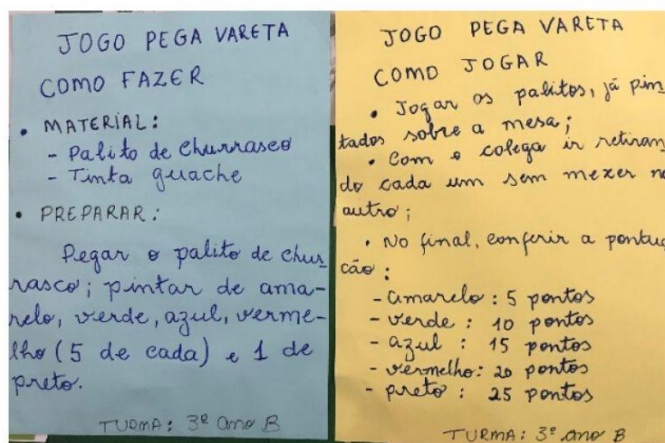 JOGO PEGA VARETA
COMO FAZER
• MATERIAL:
- Palito de churrasco
- Tinta guache
• PREPARAR:
Pegar o palito de chur
rasco; pintar de ama-
relo, verde, azul, verme-
lho (5 de cada) e 1 de
preto.
TURMA: 3º ano B
JOGO PEGA VARETA
COMO JOGAR
• Jogar os palitos, já pin
tados sobre a mesa;
• Com o colega ir retiran
do cada um sem mexer no
outro;
• No final, conferir a pontua
ção:
- amarelo: 5 pontos
- verde: 10 pontos
- azul: 15 pontos
- vermelho: 20 pontos
- preto: 25 pontos
TURMA: 3º ano B